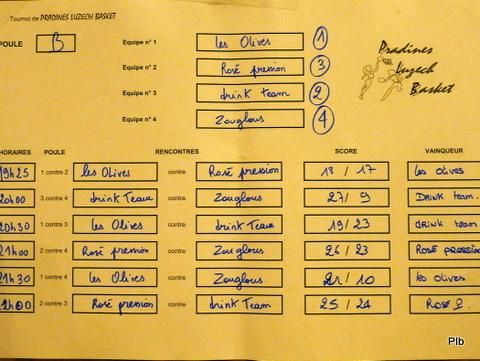 Tournoi de PRADINES LUZECH BASKET
POULE B
Equipe n° 1 les Olives 1
Equipe n° 2 Rosé pression 3
Equipe n° 3 drink team 2
Equipe n° 4 Zouglous 4
Pradines
Luzech
Basket
HORAIRES POULE RENCONTRES SCORE VAINQUEUR
19h25 1 contre 2 les Olives contre Rosé pression 18 / 17 les olives
20h00 3 contre 4 drink Team contre Zouglous 27 / 9 DRINK team.
20h30 1 contre 3 les Olives contre drink Team 19 / 23 drink team
21h00 2 contre 4 Rosé pression contre Zouglous 26 / 23 ROSÉ PRESSION
21h30 1 contre 4 les Olives contre Zouglous 21 / 10 les olives
22h00 2 contre 3 Rosé pression contre drink Team 25 / 24 ROSÉ P.
Plb